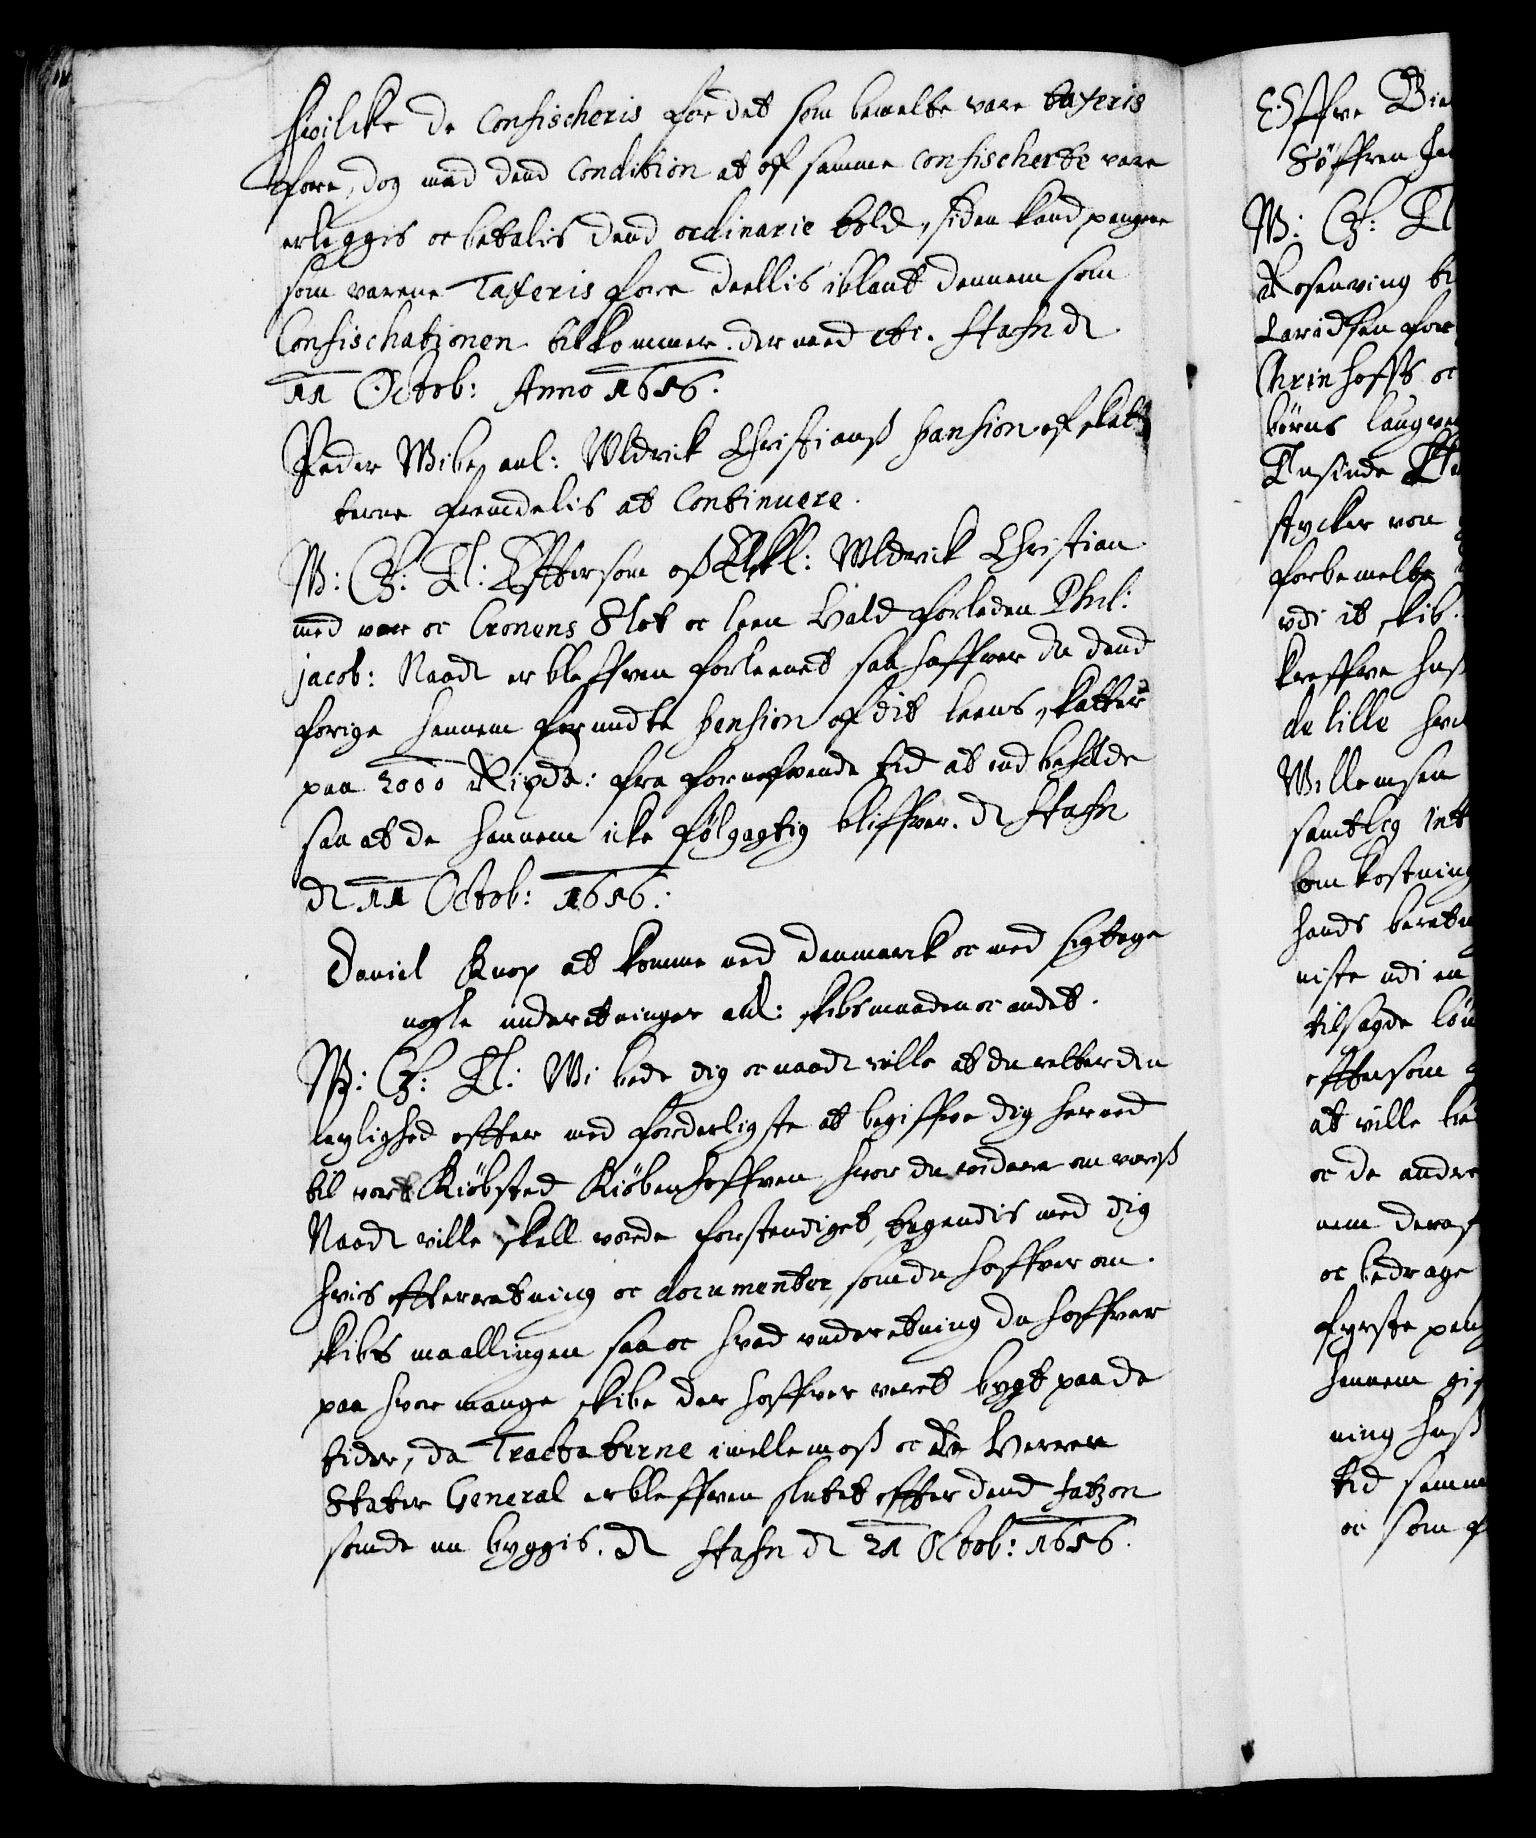 Hvilcke de Confischeris for det som bemelte vare taxeris
fore, dog med dend Condition at af samme confischerte vare
erleggis oc betalis dend ordinarie told, siden kand pengene
som varene Taxeris fore deellis iblant dennem som
Confischationen tilkommer. der med etc. Hafn d
11 Octob: Anno 1656.
Peder Wibe anl: Wldrick Christians Pansion af skat
terne fremdelis at Continuere.
W: G: T: Eftersom os Elskl: Wldrick Christian
med vor oc Cronens Slot oc leen forleden Phil:
jacob: Naadl er bleffven forleenet saa haffver du dend
forige hannem forundte Pension af dit leens skatter
paa 2000 Rixdr: fra fornefvende tid at indbeholde
saa at de hannem icke følgagtig bliffver. dl Hafn
dl 11 Octob: 1656:
Daniel Knop at komme ned danmarck oc med sig tage
nogle underetninger anl: skibsmaaden oc andet.
W: G: T: Wi bede dig oc naadl ville at du retter din
leylighed effter med forderligste at begiffve dig her ned
til vort Kiöbsted Kiöbenhaffven hvor du videre om voris
Naadl ville skall vorde forstendiget, tagendis med dig
hvis effterretning oc documenter, som du haffver om
skibs maallingen saa oc hvad underetning du haffver
paa hvor mange skibe der haffver veret bygt paa de
tider, da Tractaterne imellem os oc de Herrer
Stater General er bleffven slutet effter dend fatzon
som de nu byggis. dl Hafn dl 21 Octob: 1656.
E. Iffve
Söffren
W: G: T
Rosenving
Laridsen for
hoffts oc
börns
stycker von
forbemelte
udi it skib.
kreffve has
de lille
Willemsen
samtlig int
bekostning
hands
niste udi en
tilsagde lön
effttersom
at ville
oc de andre
nem
oc bedrage
fyrste
hannem
ning has
tid samme
oc som